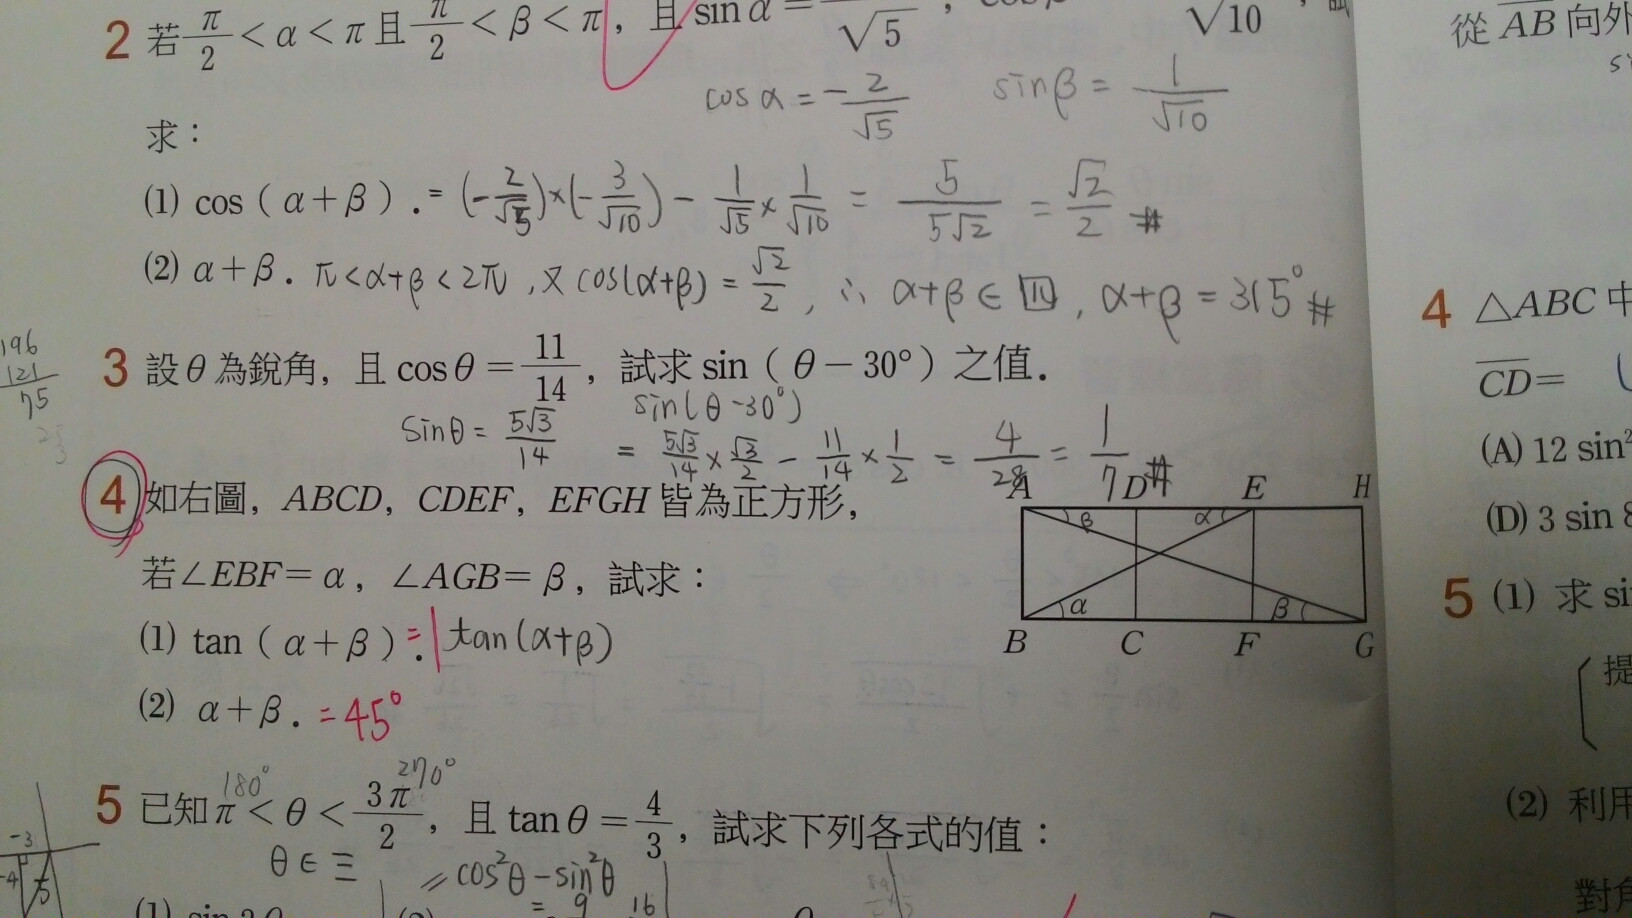 2 若 π/2 < α < π 且 π/2 < β < π，且 sin α = /√5， /√10，試
cos α = -2/√5 sin β = 1/√10
求：
(1) cos（α＋β）. = (-2/√5)×(-3/√10) - 1/√5 × 1/√10 = 5/5√2 = √2/2 #
(2) α＋β. π<α+β<2π，又 cos(α+β) = √2/2，∴ α+β ∈ 四，α+β = 315° #
196
121
75
3 設 θ 為銳角，且 cos θ = 11/14，試求 sin（θ－30°）之值．
sin(θ-30°)
sinθ = 5√3/14 = 5√3/14 × √3/2 - 11/14 × 1/2 = 4/28 = 1/7 #
4 如右圖，ABCD，CDEF，EFGH 皆為正方形，
若∠EBF＝α，∠AGB＝β，試求：
(1) tan（α＋β）. =1 tan(α+β)
(2) α＋β. =45°
A D E H
β α
α β
B C F G
180° 270°
5 已知 π < θ < 3π/2，且 tan θ = 4/3，試求下列各式的值：
θ ∈ 三 = cos²θ - sin²θ
-3
-4 5
= 9 16
(1) sin 2θ (2)
從 AB 向外
4 △ABC 中
CD＝
(A) 12 sin²
(D) 3 sin 8
5 (1) 求 si
提
(2) 利用
對角